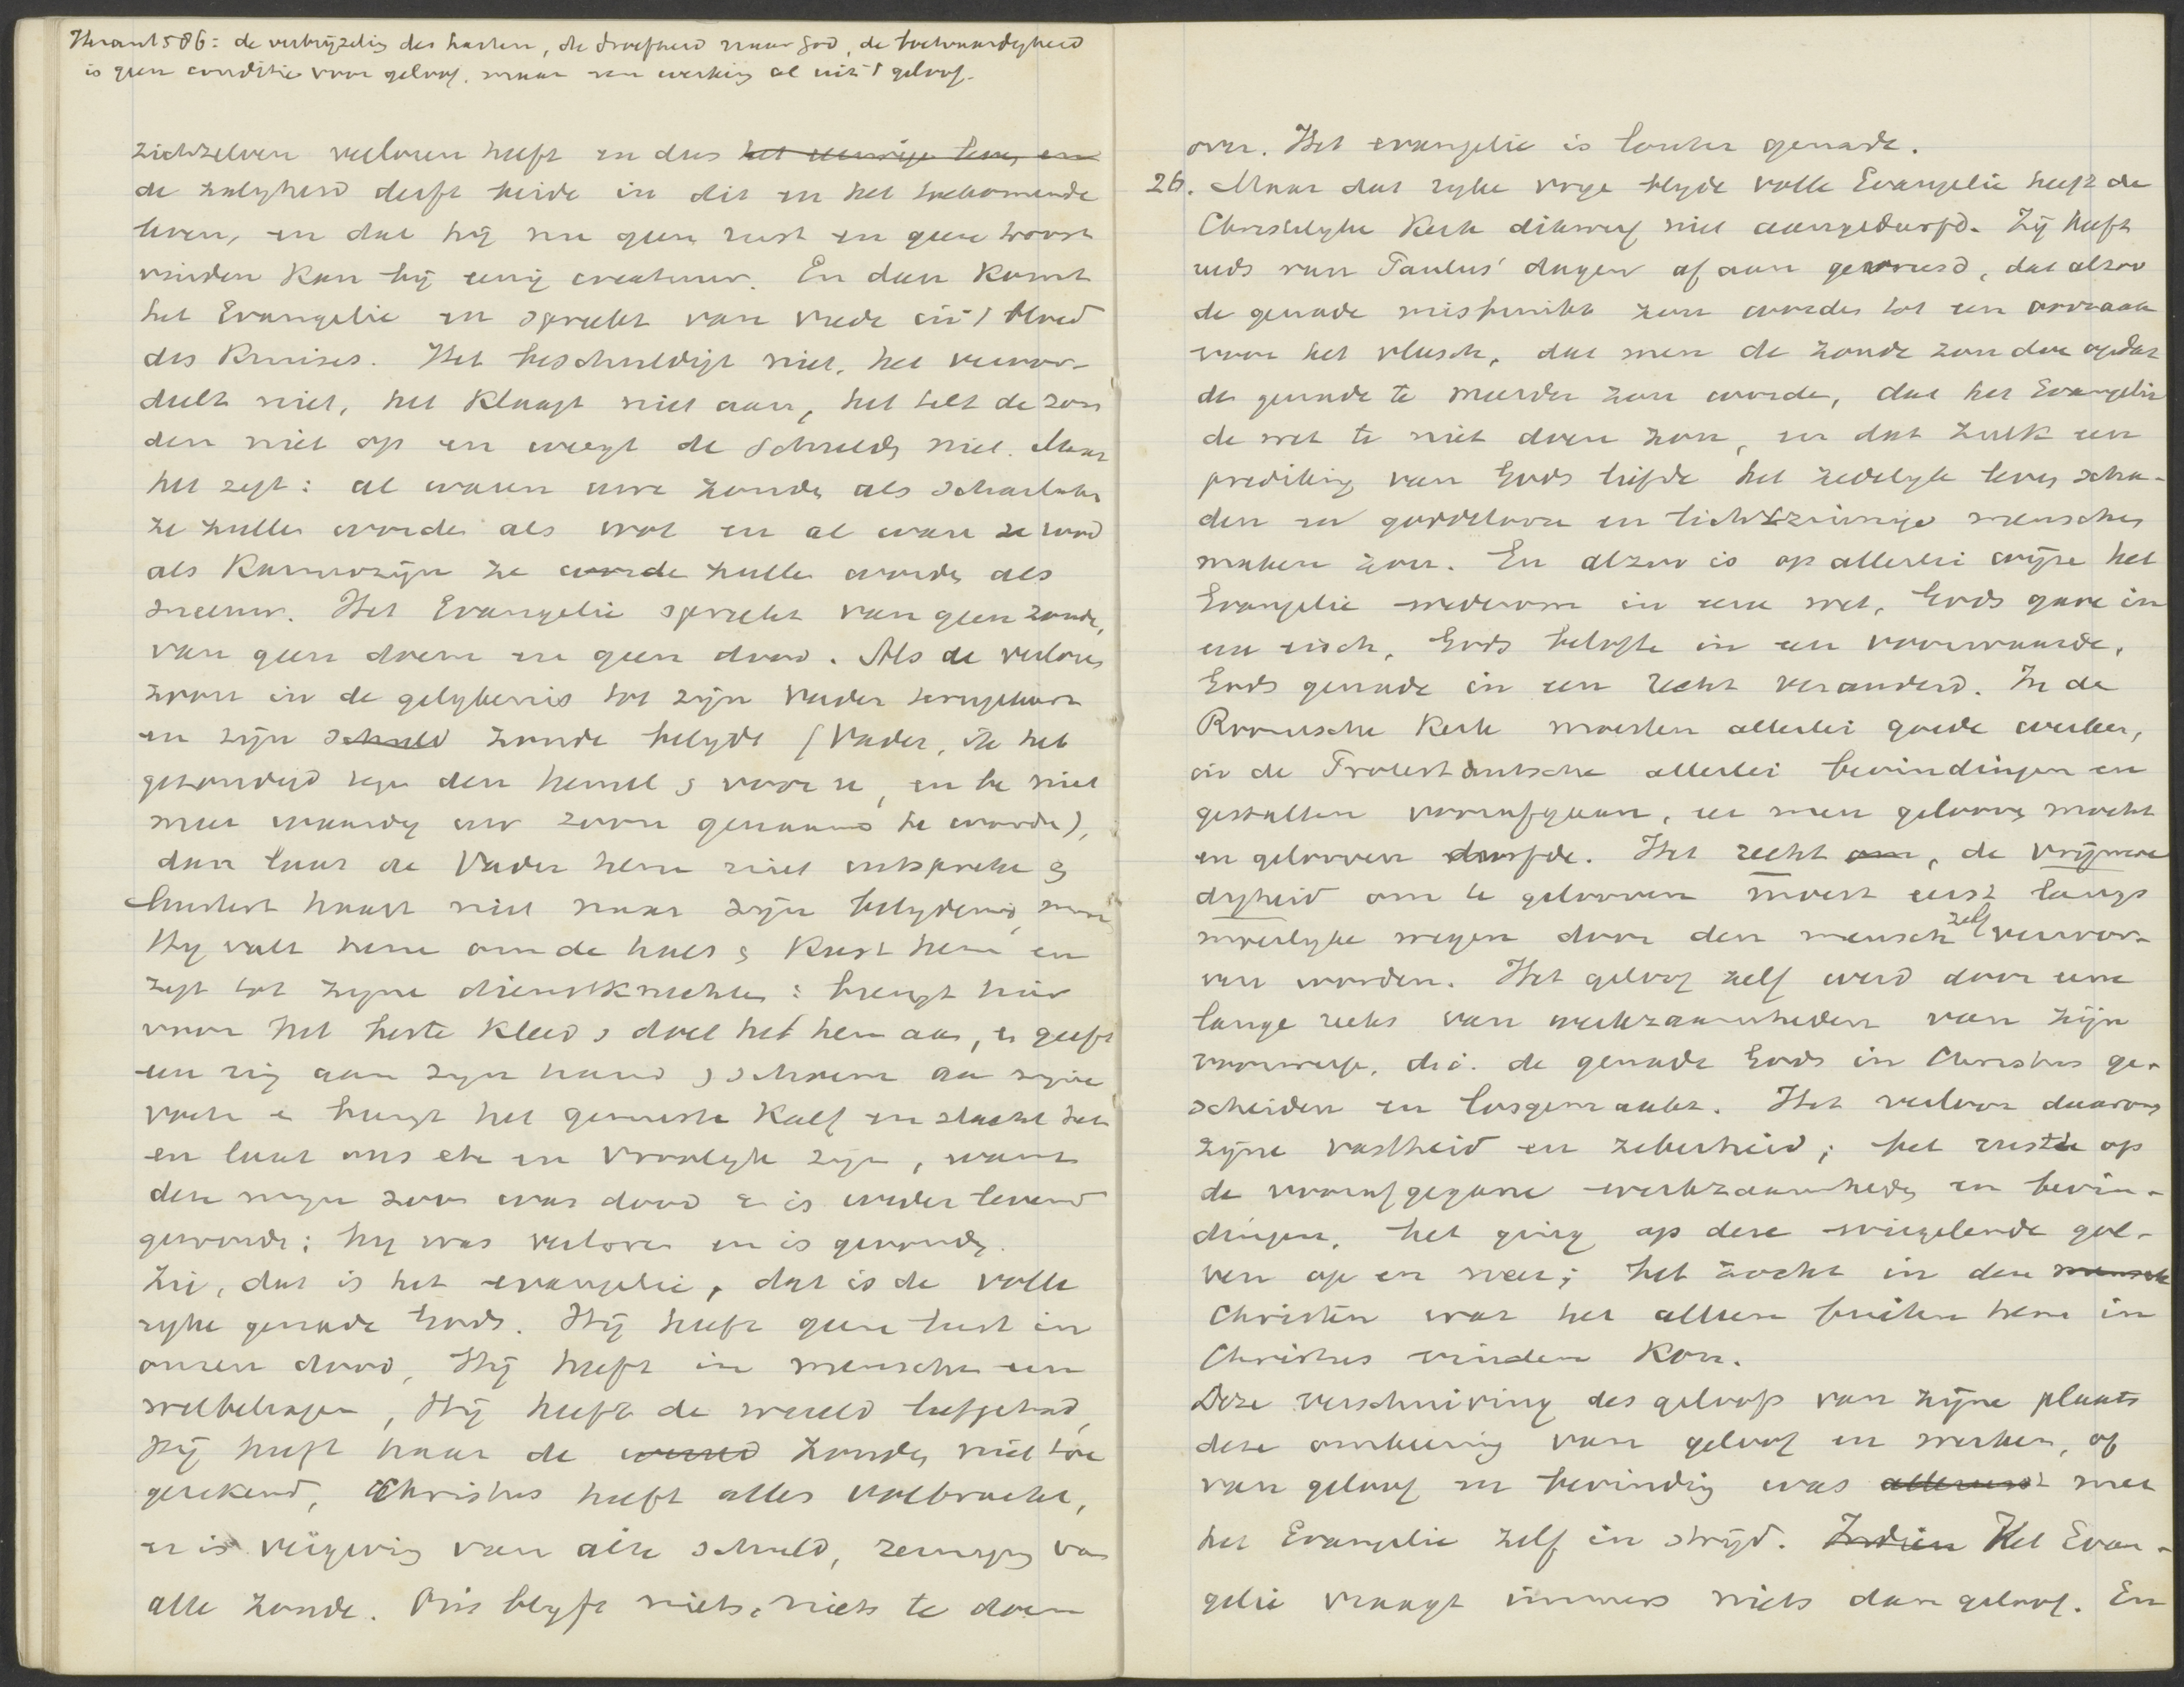 Heraut 586: de verbrijzeling des harten, de droefheid naar God, de boetvaardigheid
is geen conditie voor geloof, maar een werking al uit 't geloof.
zichzelven verloren heeft en dus het eeuwige leven, en
de zaligheid derft beide in dit en het toekomende
leven, en dat hij nu geen rust en geen troost
vinden kan bij eenig creatuur. En dan komt
het Evangelie en spreekt van vrede in 't bloed
des Kruises. Het beschuldigt niet, het veroor-
deelt niet, het klaagt niet aan, het telt de zon
den niet op en weegt de schulden niet. Maar
het zegt: al waren uwe zonden als scharlaken
ze zullen worden als wol en al waren ze rood
als karmozijn ze worde zullen worden als
sneeuw. Het Evangelie spreekt van geen zonde,
van geen doem en geen dood. Als de verloren
zoon in de gelykenis tot zijn Vader terugkeert
en zijn schuld zonde belydt (Vader, ik heb
gezondigd tegen den hemel en voor u, en ben niet
meer waardig uw zoon genaamd te worden),
dan laat de Vader hem niet uitspreken en
luistert haast niet naar zijn belydenis, maar
Hy valt hem om de hals en kust hem en
zegt tot zyne dienstknechten: brengt hier
voor het beste kleed en doet het hem aan, en geeft
een ring aan zyn hand en schoenen aan zyne
voeten en brengt het gemeste kalf en slacht het
en laat ons eten en vroolyk zyn, want
deze myn zoon was dood en is weder levend
geworden; hy was verloren en is gevonden.
Zie, dat is het evangelie, dat is de volle
ryke genade Gods. Hij heeft geen lust in
onzen dood, Hij heeft in menschen een
welbehagen, Hij heeft de wereld liefgehad,
Hij heeft haar de wereld zonden niet toe
gerekend, Christus heeft alles volbracht,
er is vergeving van alle schuld, reiniging van
alle zonde. Ons blyft niets, niets te doen
over. Het evangelie is louter genade.
26. Maar dat ryke vrye blyde volle Evangelie heeft de
Christelyke Kerk dikwerf niet aangedurfd. Zij heeft
reeds van Paulus' dagen af aan gevreesd, dat alzoo
de genade misbruikt zou worden tot een oorzaak
voor het vleesch, dat men de zonde zou doen opdat
de genade te meerder zou worde, dat het Evangelie
de wet te niet doen zou, en dat zulk een
prediking van Gods liefde het zedelyk leven scha-
den en goddelooze en lichtzinnige menschen
maken zou. En alzoo is op allerlei wijze het
Evangelie wederom in eene wet, Gods gave in
een eisch, Gods belofte in een voorwaarde,
Gods genade in een recht veranderd. In de
Roomsche Kerk moesten allerlei goede werken,
in de Protestantsche allerlei bevindingen en
gestalten voorafgaan, eer men gelooven mocht
en gelooven durfde. Het recht om, de vrijmoe
digheid om te gelooven moest eerst langs
moeilyke wegen door den mensch zelf verwor-
ven worden. Het geloof zelf werd door eene
lange reeks van werkzaamheden van zijn
voorwerp, d.i. de genade Gods in Christus ge-
scheiden en losgemaakt. Het verloor daarom
zijne vastheid en zekerheid; het rustte op
de voorafgegane werkzaamheden en bevin-
dingen, het ging op deze wiegelende gol-
ven op en neer; het zocht in den mensch
Christen wat het alleen buiten hem in
Christus vinden kon.
Deze verschuiving des geloofs van zijne plaats
deze omkeering van geloof en werken, of
van geloof en bevinding was allereerst met
het Evangelie zelf in strijd. Indien Het Evan-
gelie vraagt immers niets dan geloof. En